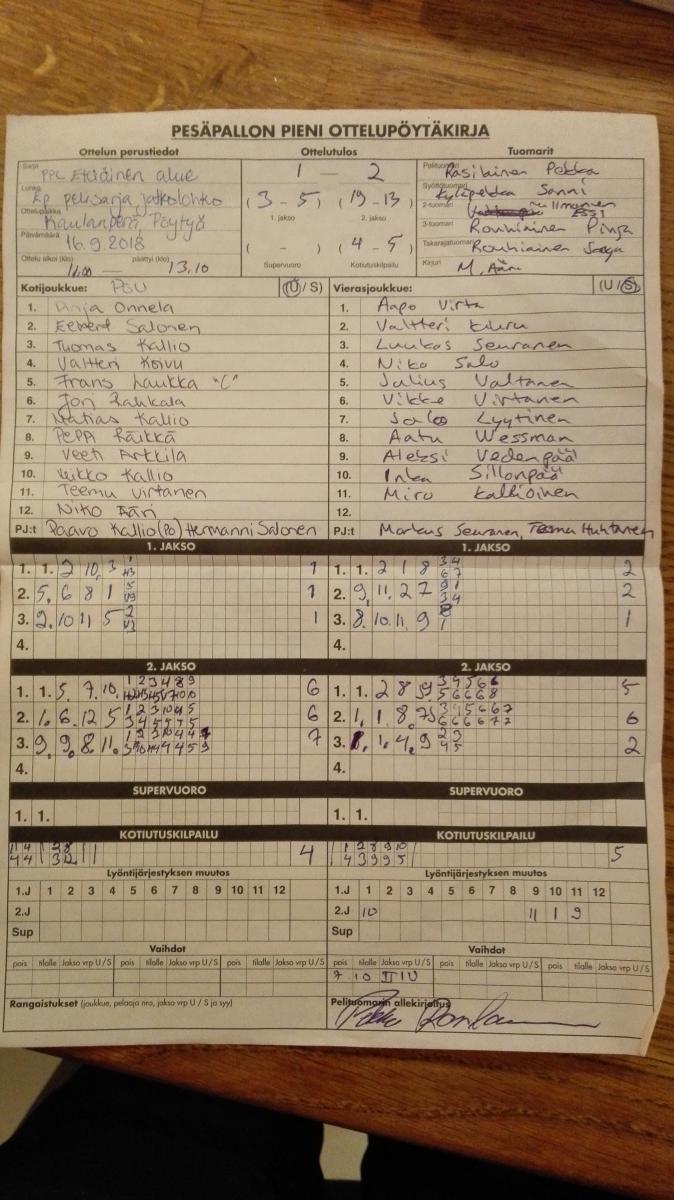 PESÄPALLON PIENI OTTELUPÖYTÄKIRJA
Ottelun perustiedot
Ottelutulos
Tuomarit
Sarja
PPL Eteläinen alue
Lohko
Ep pelisarja jatkolohko
Ottelupaikka
Kaulanperä, Pöytyä
Päivämäärä
16.9.2018
Ottelu alkoi (klo) päättyi (klo)
11.00 — 13.10
1 — 2
( 3 - 5 ) ( 19 - 13 )
1. jakso 2. jakso
( - ) ( 4 - 5 )
Supervuoro Kotiutuskilpailu
Pelituomari
Räsiläinen Pekka
Syöttötuomari
Sanni
2-tuomari
Ilmanen Essi
3-tuomari
Rouhiainen Pinja
Takarajatuomari
Rouhiainen Saga
Kirjuri
M. Ääri
Kotijoukkue: PöU (U / S)
1. Pinja Onnela
2. Eebert Salonen
3. Tuomas Kallio
4. Valtteri Koivu
5. Frans Laukka "C"
6. Joni Rahkala
7. Matias Kallio
8. Peppi Räikkä
9. Veeti Arkkila
10. Veikko Kallio
11. Teemu Virtanen
12. Niko Ääri
PJ:t Paavo Kallio (Po) Hermanni Salonen
Vierasjoukkue: (U / S)
1. Aapo Virta
2. Valtteri Kiuru
3. Luukas Seuranen
4. Niko Salo
5. Julius Valtanen
6. Vikke Virtanen
7. Salo Lyytinen
8. Aatu Wessman
9. Aleksi Vedenpää
10. Inka Sillanpää
11. Miro Kallioinen
12.
PJ:t Markus Seuranen, Teemu Huhtanen
1. JAKSO
1. 1. 2 10, 3 1
2. 5, 6 8 1 1
3. 2. 10 11 5 1
4.
1. JAKSO
1. 1. 2 1 8 3 4 6 7 2
2. 9, 11, 2 7 9 1 3 4 2
3. 8. 10. 11. 9 1
4.
2. JAKSO
1. 1. 5, 7, 10, 6
2. 1, 6. 12 5 6
3. 9, 9. 8. 11. 7
4.
2. JAKSO
1. 1. 2 8 5
2. 1, 1 8, 6
3. 1, 4, 9 2 3 4 5 2
4.
SUPERVUORO
1. 1.
SUPERVUORO
1. 1.
KOTIUTUSKILPAILU
4
KOTIUTUSKILPAILU
1 2 8 9 10
4 3 9 9 5
5
Lyöntijärjestyksen muutos
1.J 1 2 3 4 5 6 7 8 9 10 11 12
2.J
Sup
Lyöntijärjestyksen muutos
1.J 1 2 3 4 5 6 7 8 9 10 11 12
2.J 10 11 1 9
Sup
Vaihdot
pois tilalle Jakso vrp U / S pois tilalle Jakso vrp U / S pois tilalle Jakso vrp U / S
Vaihdot
pois tilalle Jakso vrp U / S pois tilalle Jakso vrp U / S pois tilalle Jakso vrp U / S
7 10 II IU
Rangaistukset (joukkue, pelaaja nro, jakso vrp U / S ja syy)
Pelituomarin allekirjoitus